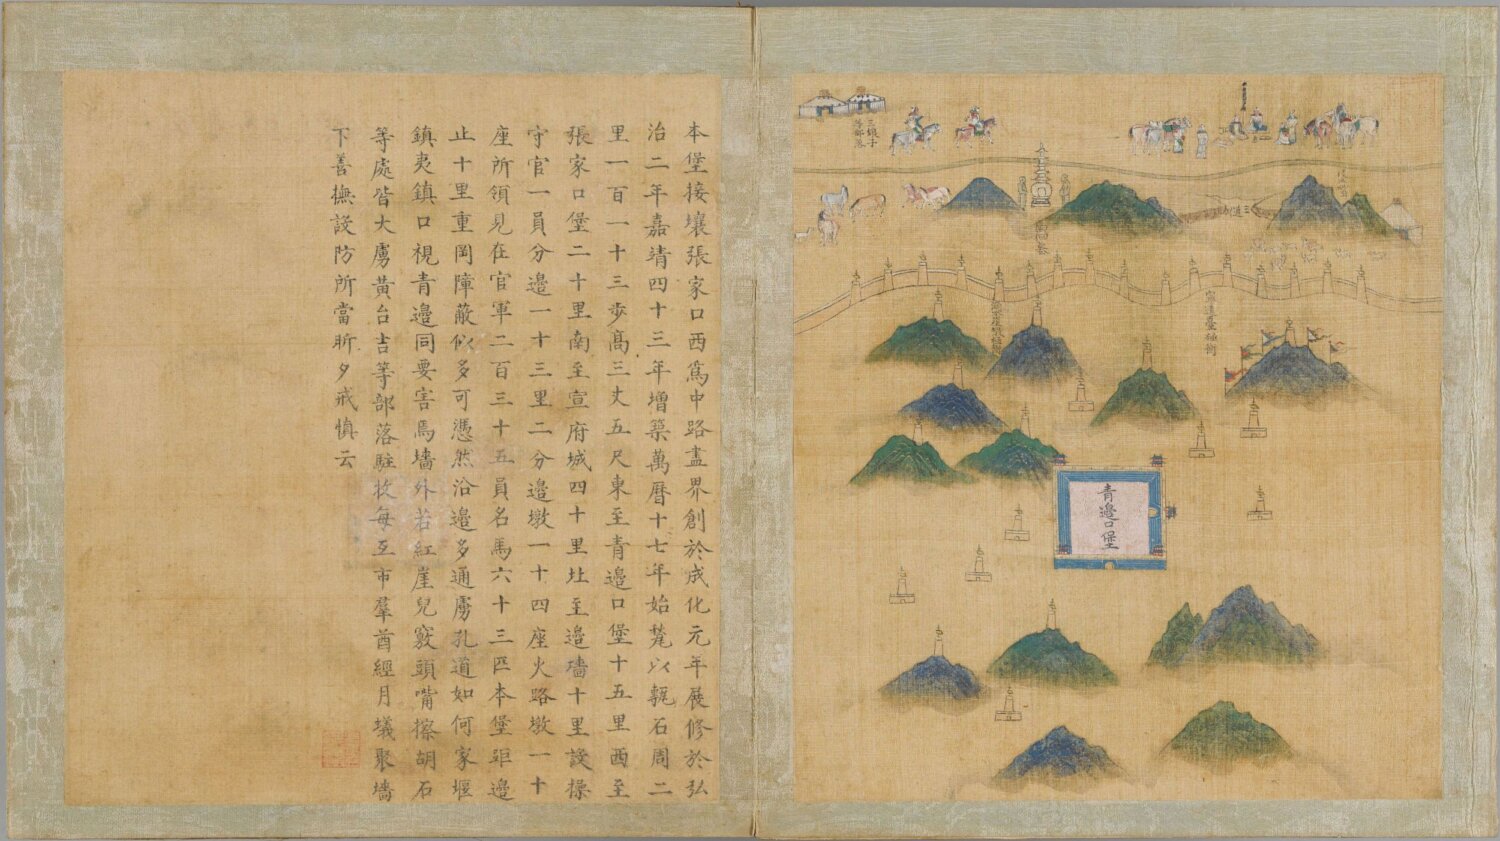 本堡接壤張家口西爲中路盡界創於成化元年展修於弘
治二年嘉靖四十三年增築萬曆十七年始甃以甎石周二
里一百一十三步高三丈五尺東至青邊口堡十五里西至
張家口堡二十里南至宣府城四十里北至邊墻十里設操
守官一員分邊一十三里二分邊墩一十四座火路墩一十
座所領見在官軍二百三十五員名馬六十三匹本堡距邊
止十里重岡障蔽似多可憑然沿邊多通虜孔道如何家堰
鎮夷鎮口視青邊同要害焉墻外若紅崖兒窽頭嘴擦胡石
等處皆大虜黃台吉等部落駐牧每互市羣酋經月蟻聚墻
下善撫設防所當昕夕戒慎云
三娘子
等部落
青邊口堡